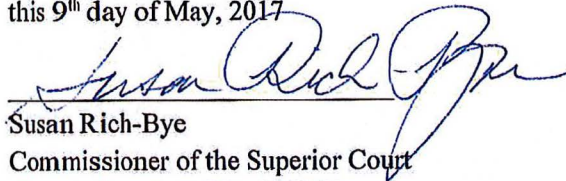 this 9th day of May, 2017
Susan Rich-Bye
Susan Rich-Bye
Commissioner of the Superior Court